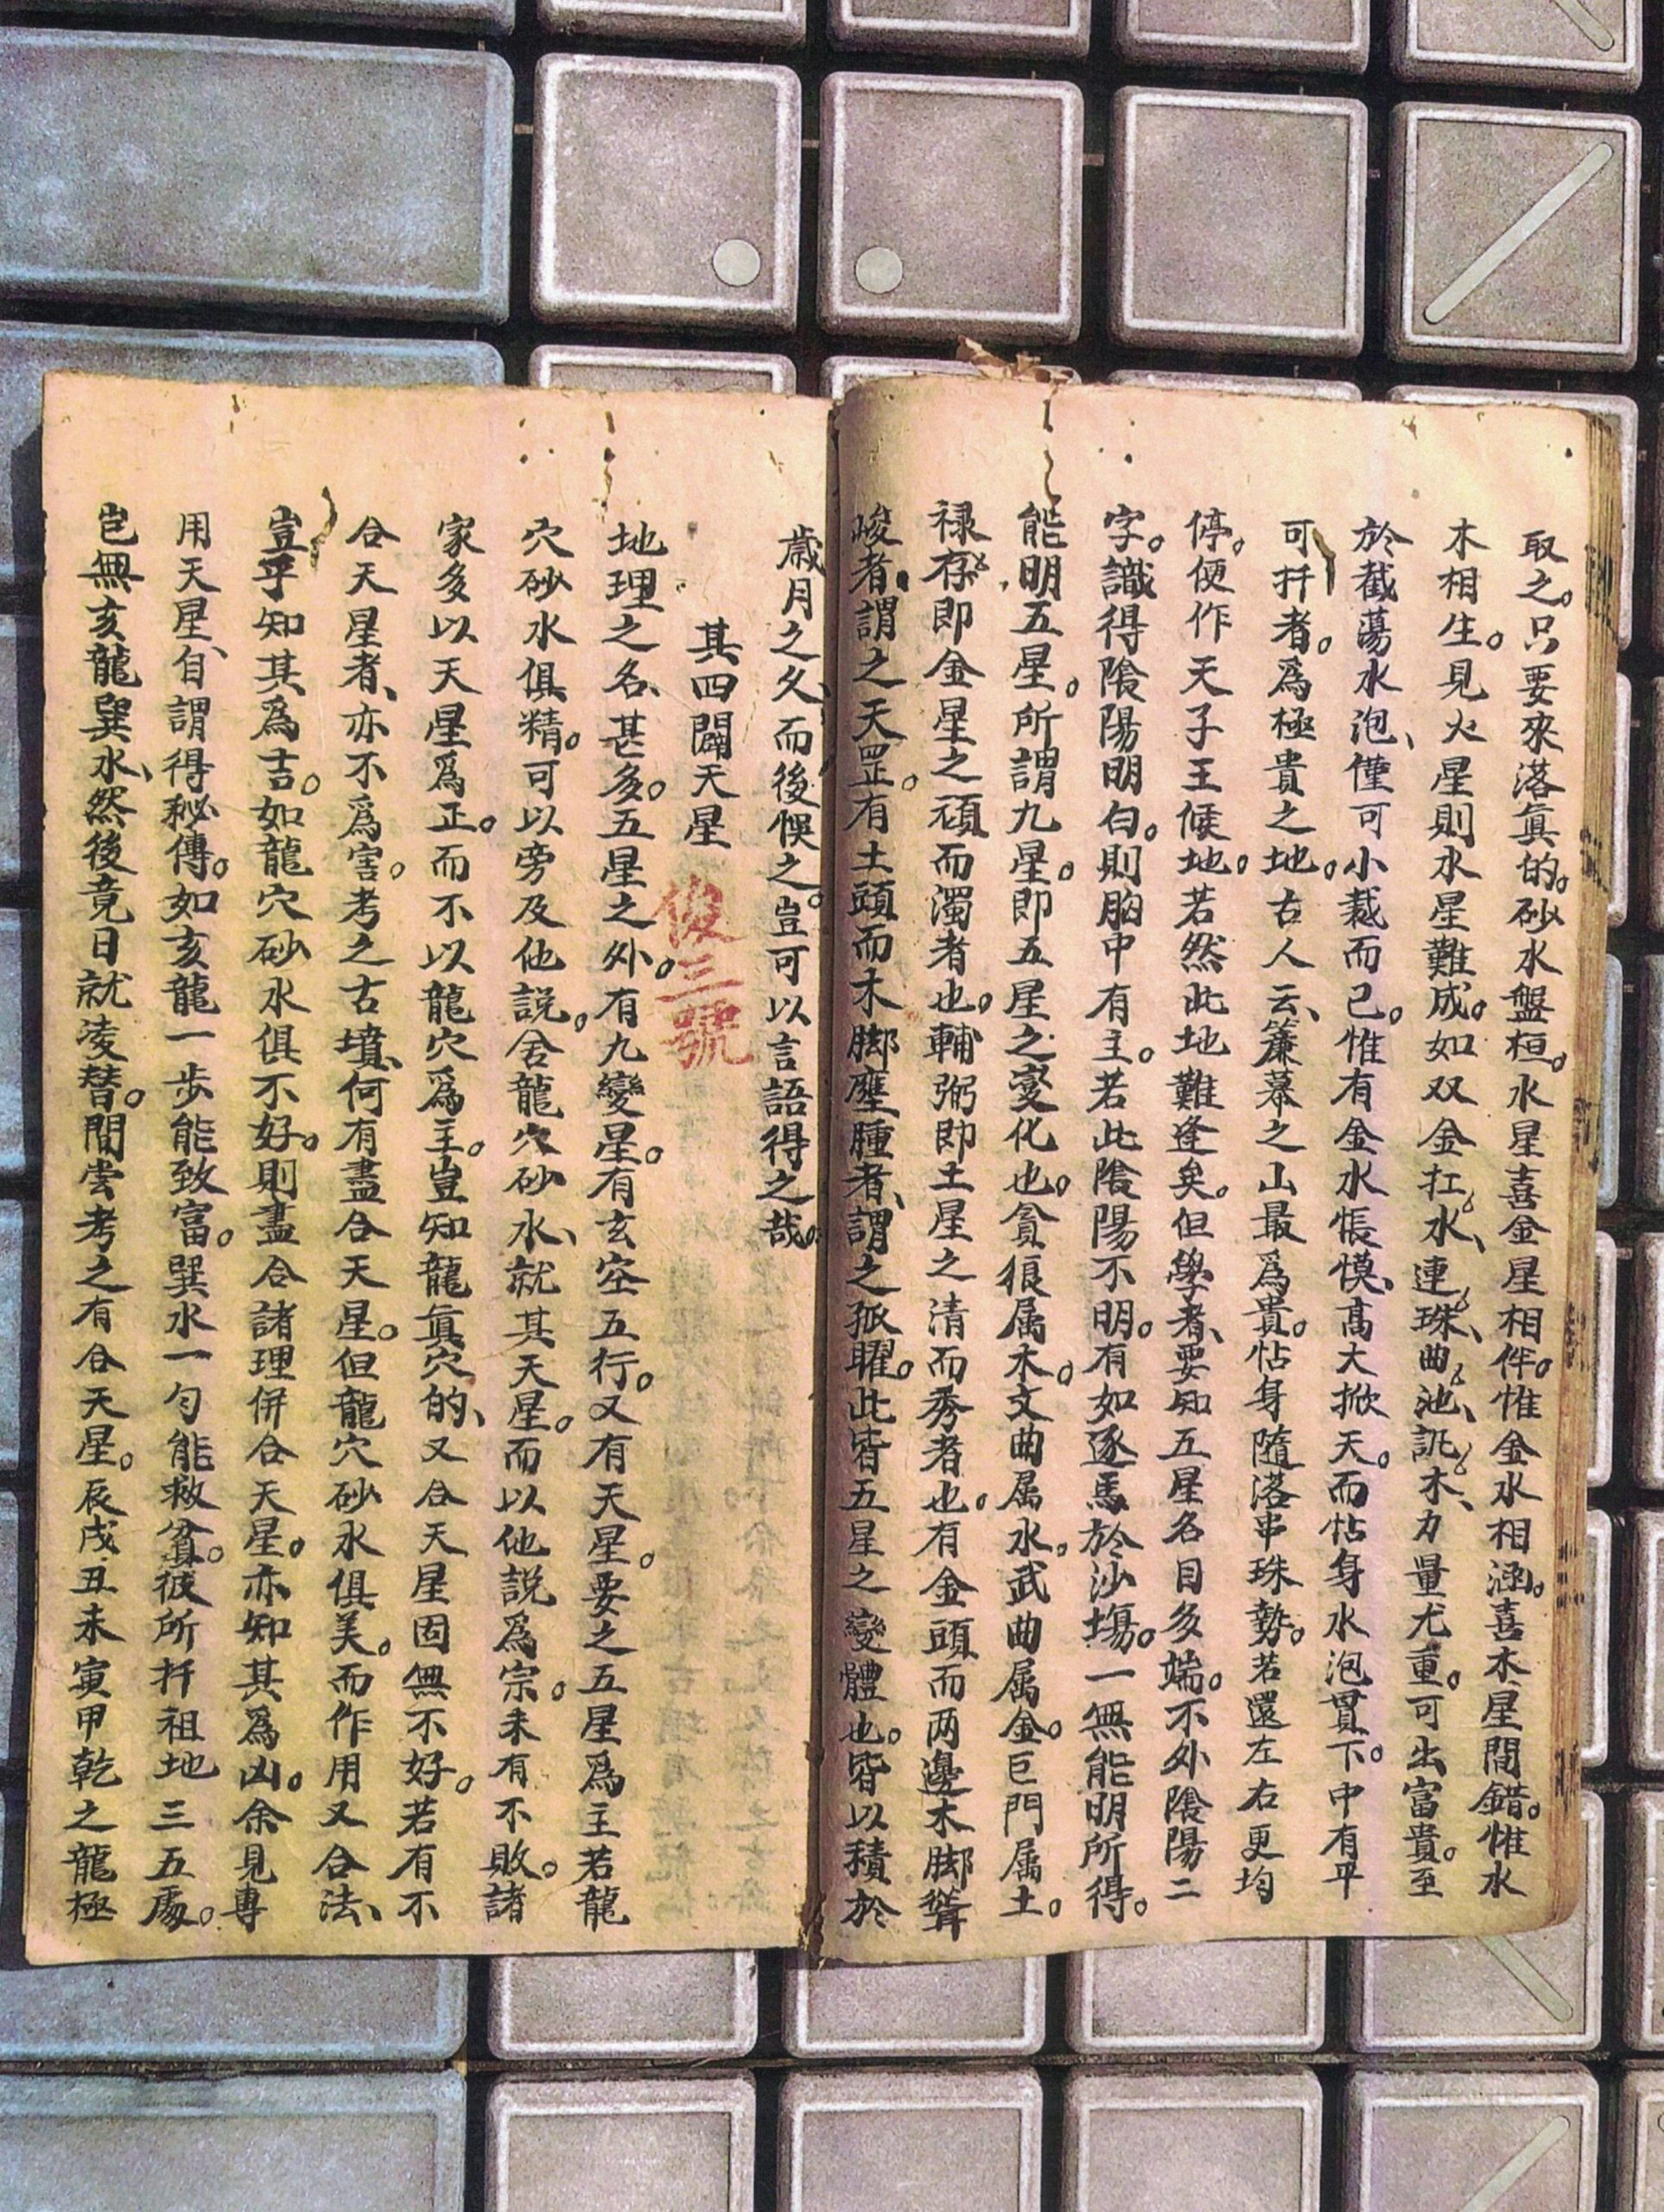 取之。只要來落眞的。砂水盤桓。水星喜金星相伴。惟金水相涵。喜木星間錯。惟水
木相生。見火星則水星難成。如双金扛水、連珠、曲池、訛木、力量尤重。可出富貴。至
於截蕩水泡、僅可小裁而已。惟有金水帳幙、高大掀天。而帖身水泡貫下。中有平
可扦者。爲極貴之地。古人云、簾幕之山最爲貴。帖身隨落串珠勢。若還左右更均
停。便作天子王候地。若然此地難逢矣。但學者、要知五星名目多端。不外陰陽二
字。識得陰陽明白。則胸中有主。若此陰陽不明。有如逐馬於沙塲。一無能明所得。
能明五星。所謂九星。即五星之変化也。貪狼属木。文曲属水。武曲属金。巨門属土。
禄存即金星之頑而濁者也。輔弼即土星之清而秀者也。有金頭而两邊木脚聳
峻者。謂之天罡。有土頭而木脚臃腫者、謂之孤曜。此皆五星之變體也。皆以積於
歲月之久、而後悞之。豈可以言語得之哉。
其四闢天星
俊三號
地理之名、甚多。五星之外。有九變星。有玄空五行。又有天星。要之五星爲主若龍
穴砂水俱精。可以旁及他説。舍龍穴砂水、就其天星。而以他説爲宗。未有不敗。諸
家多以天星爲正。而不以龍穴爲主。豈知龍眞穴的、又合天星固無不好。若有不
合天星者、亦不爲害。考之古墳、何有盡合天星。但龍穴砂水俱美。而作用又合法、
豈乎知其爲吉。如龍穴砂水俱不好。則盡合諸理併合天星。亦知其爲凶。余見專
用天星、自謂得秘傳。如亥龍一步能致富。巽水一勺能救貧。彼所扦祖地三五處。
岂無亥龍巽水、然後竟日就凌替。間嘗考之有合天星。辰戌丑未寅甲乾之龍極